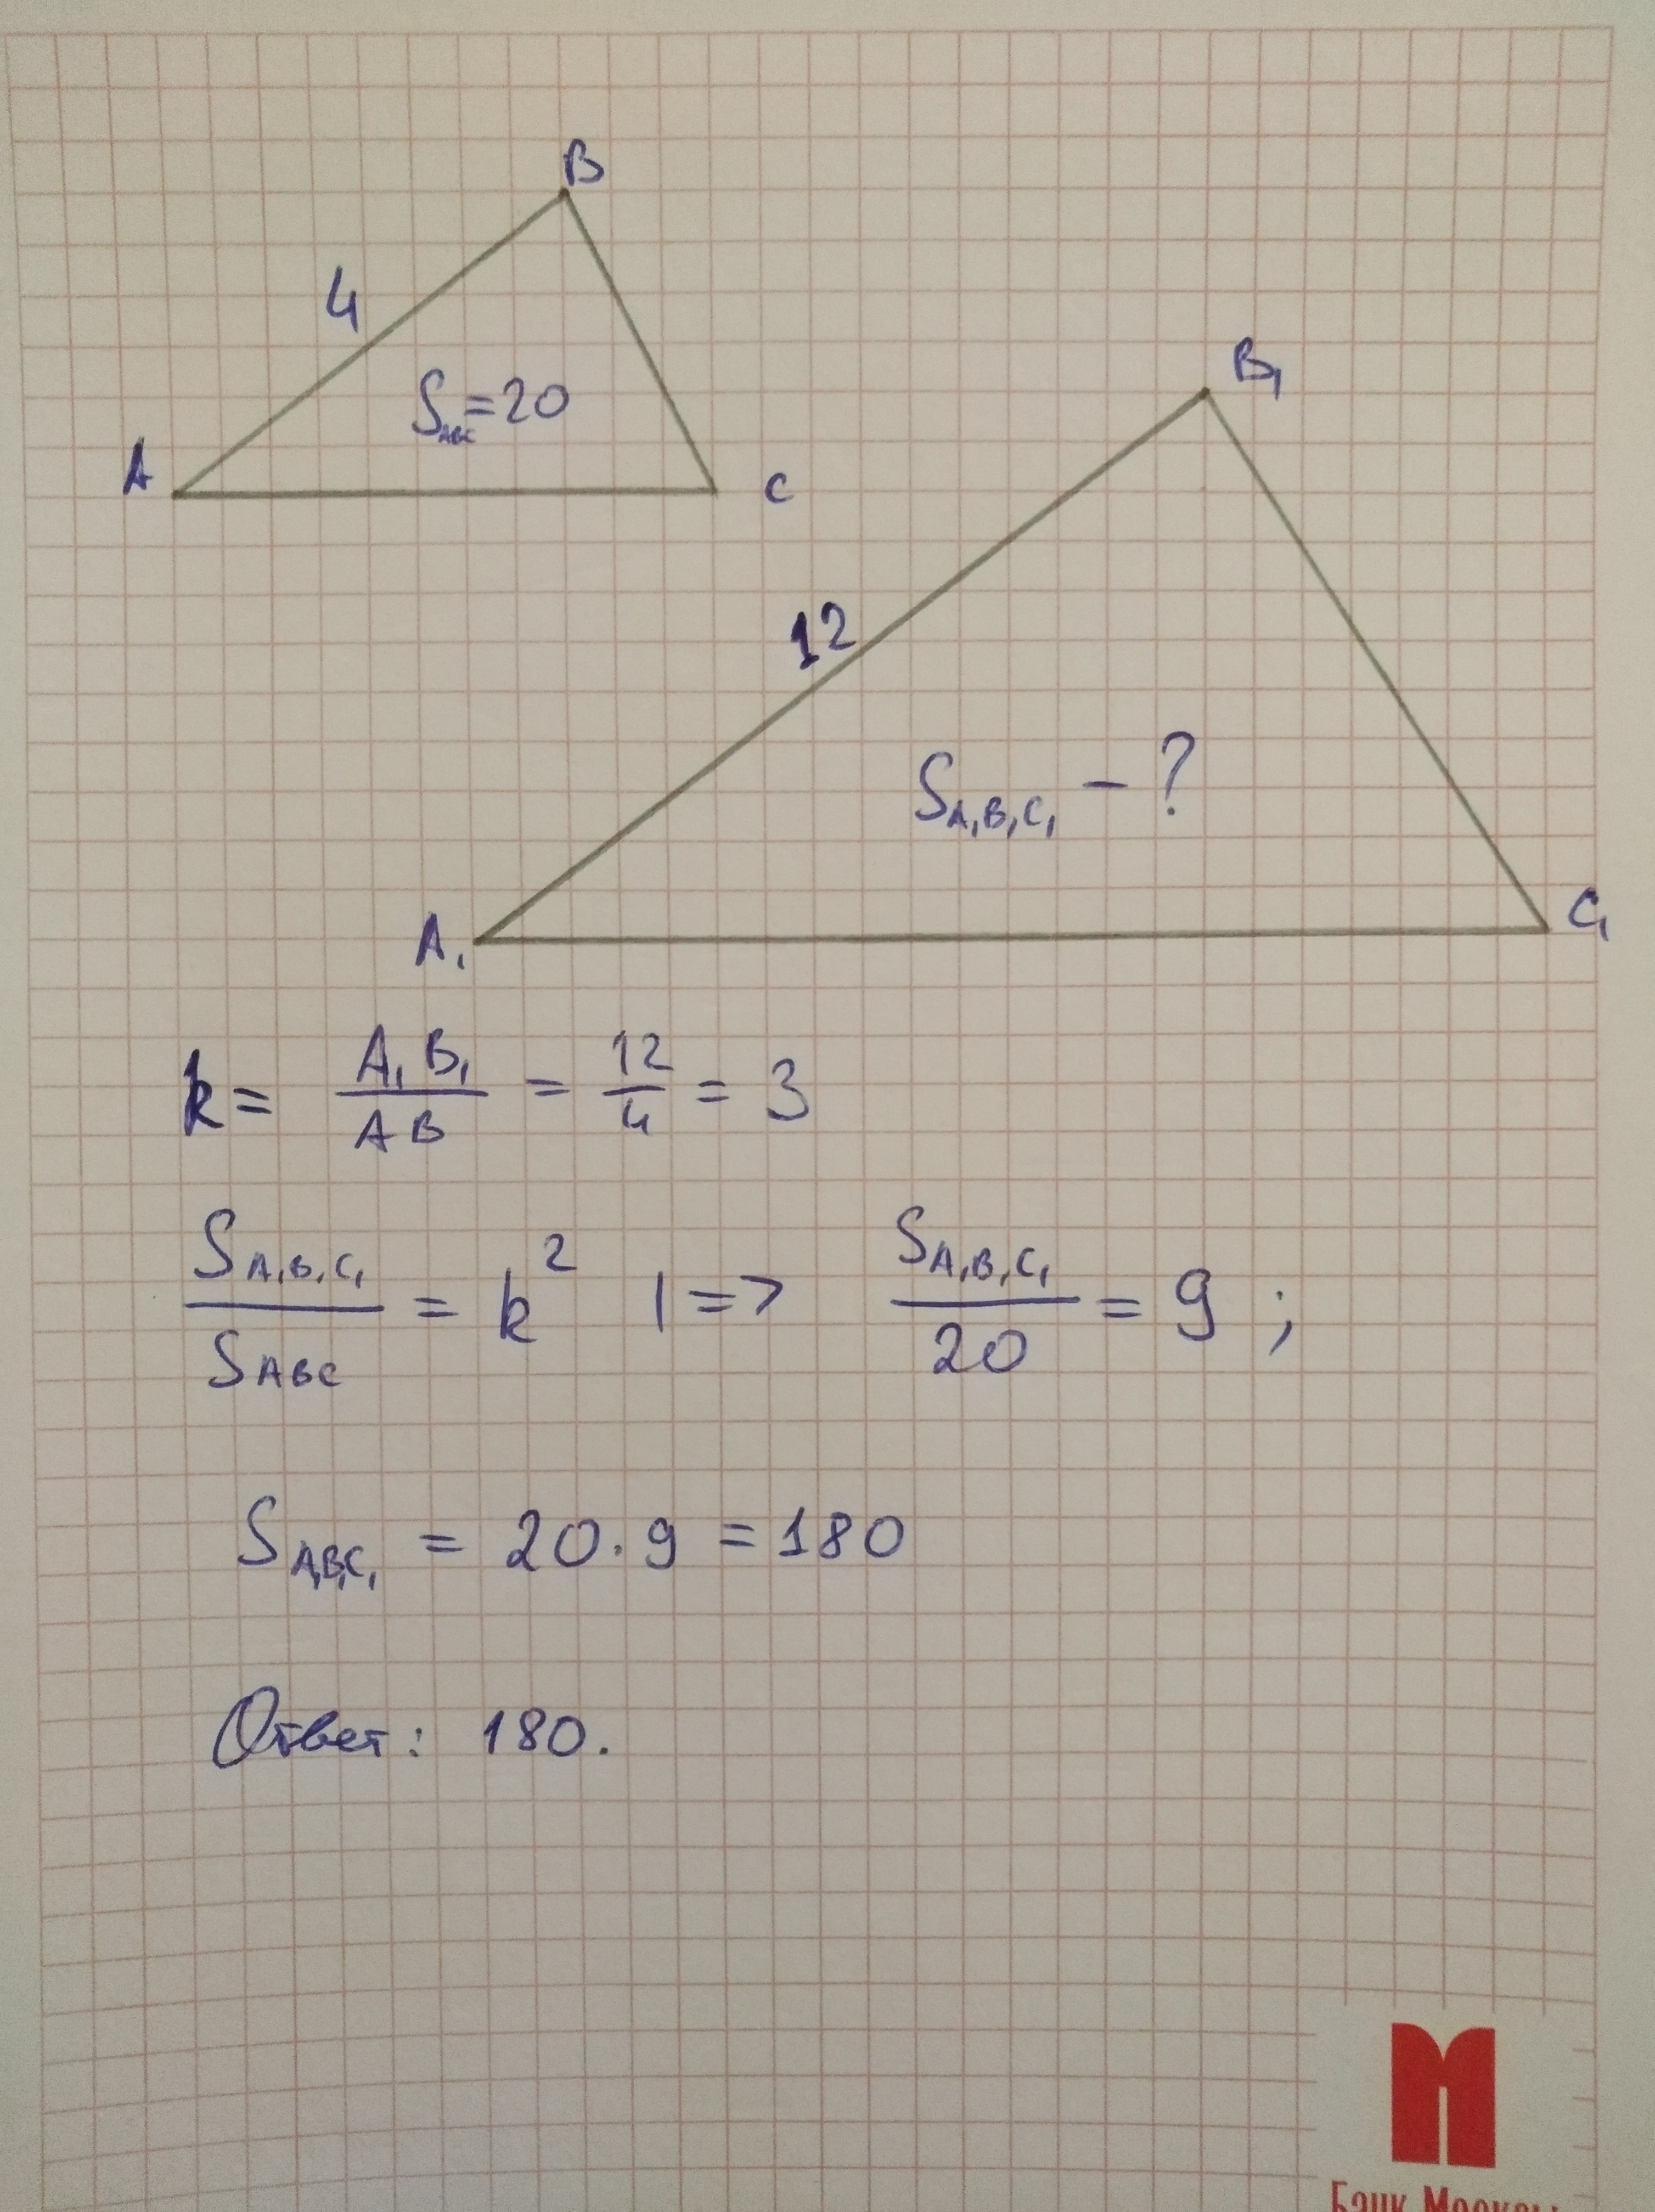 B
4
S_ABC = 20
A
C
B₁
12
S_A₁B₁C₁ - ?
A₁
C₁
k = A₁B₁/AB = 12/4 = 3
S_A₁B₁C₁/S_ABC = k² | => S_A₁B₁C₁/20 = 9 ;
S_A₁B₁C₁ = 20 · 9 = 180
Ответ: 180.
Банк Москвы